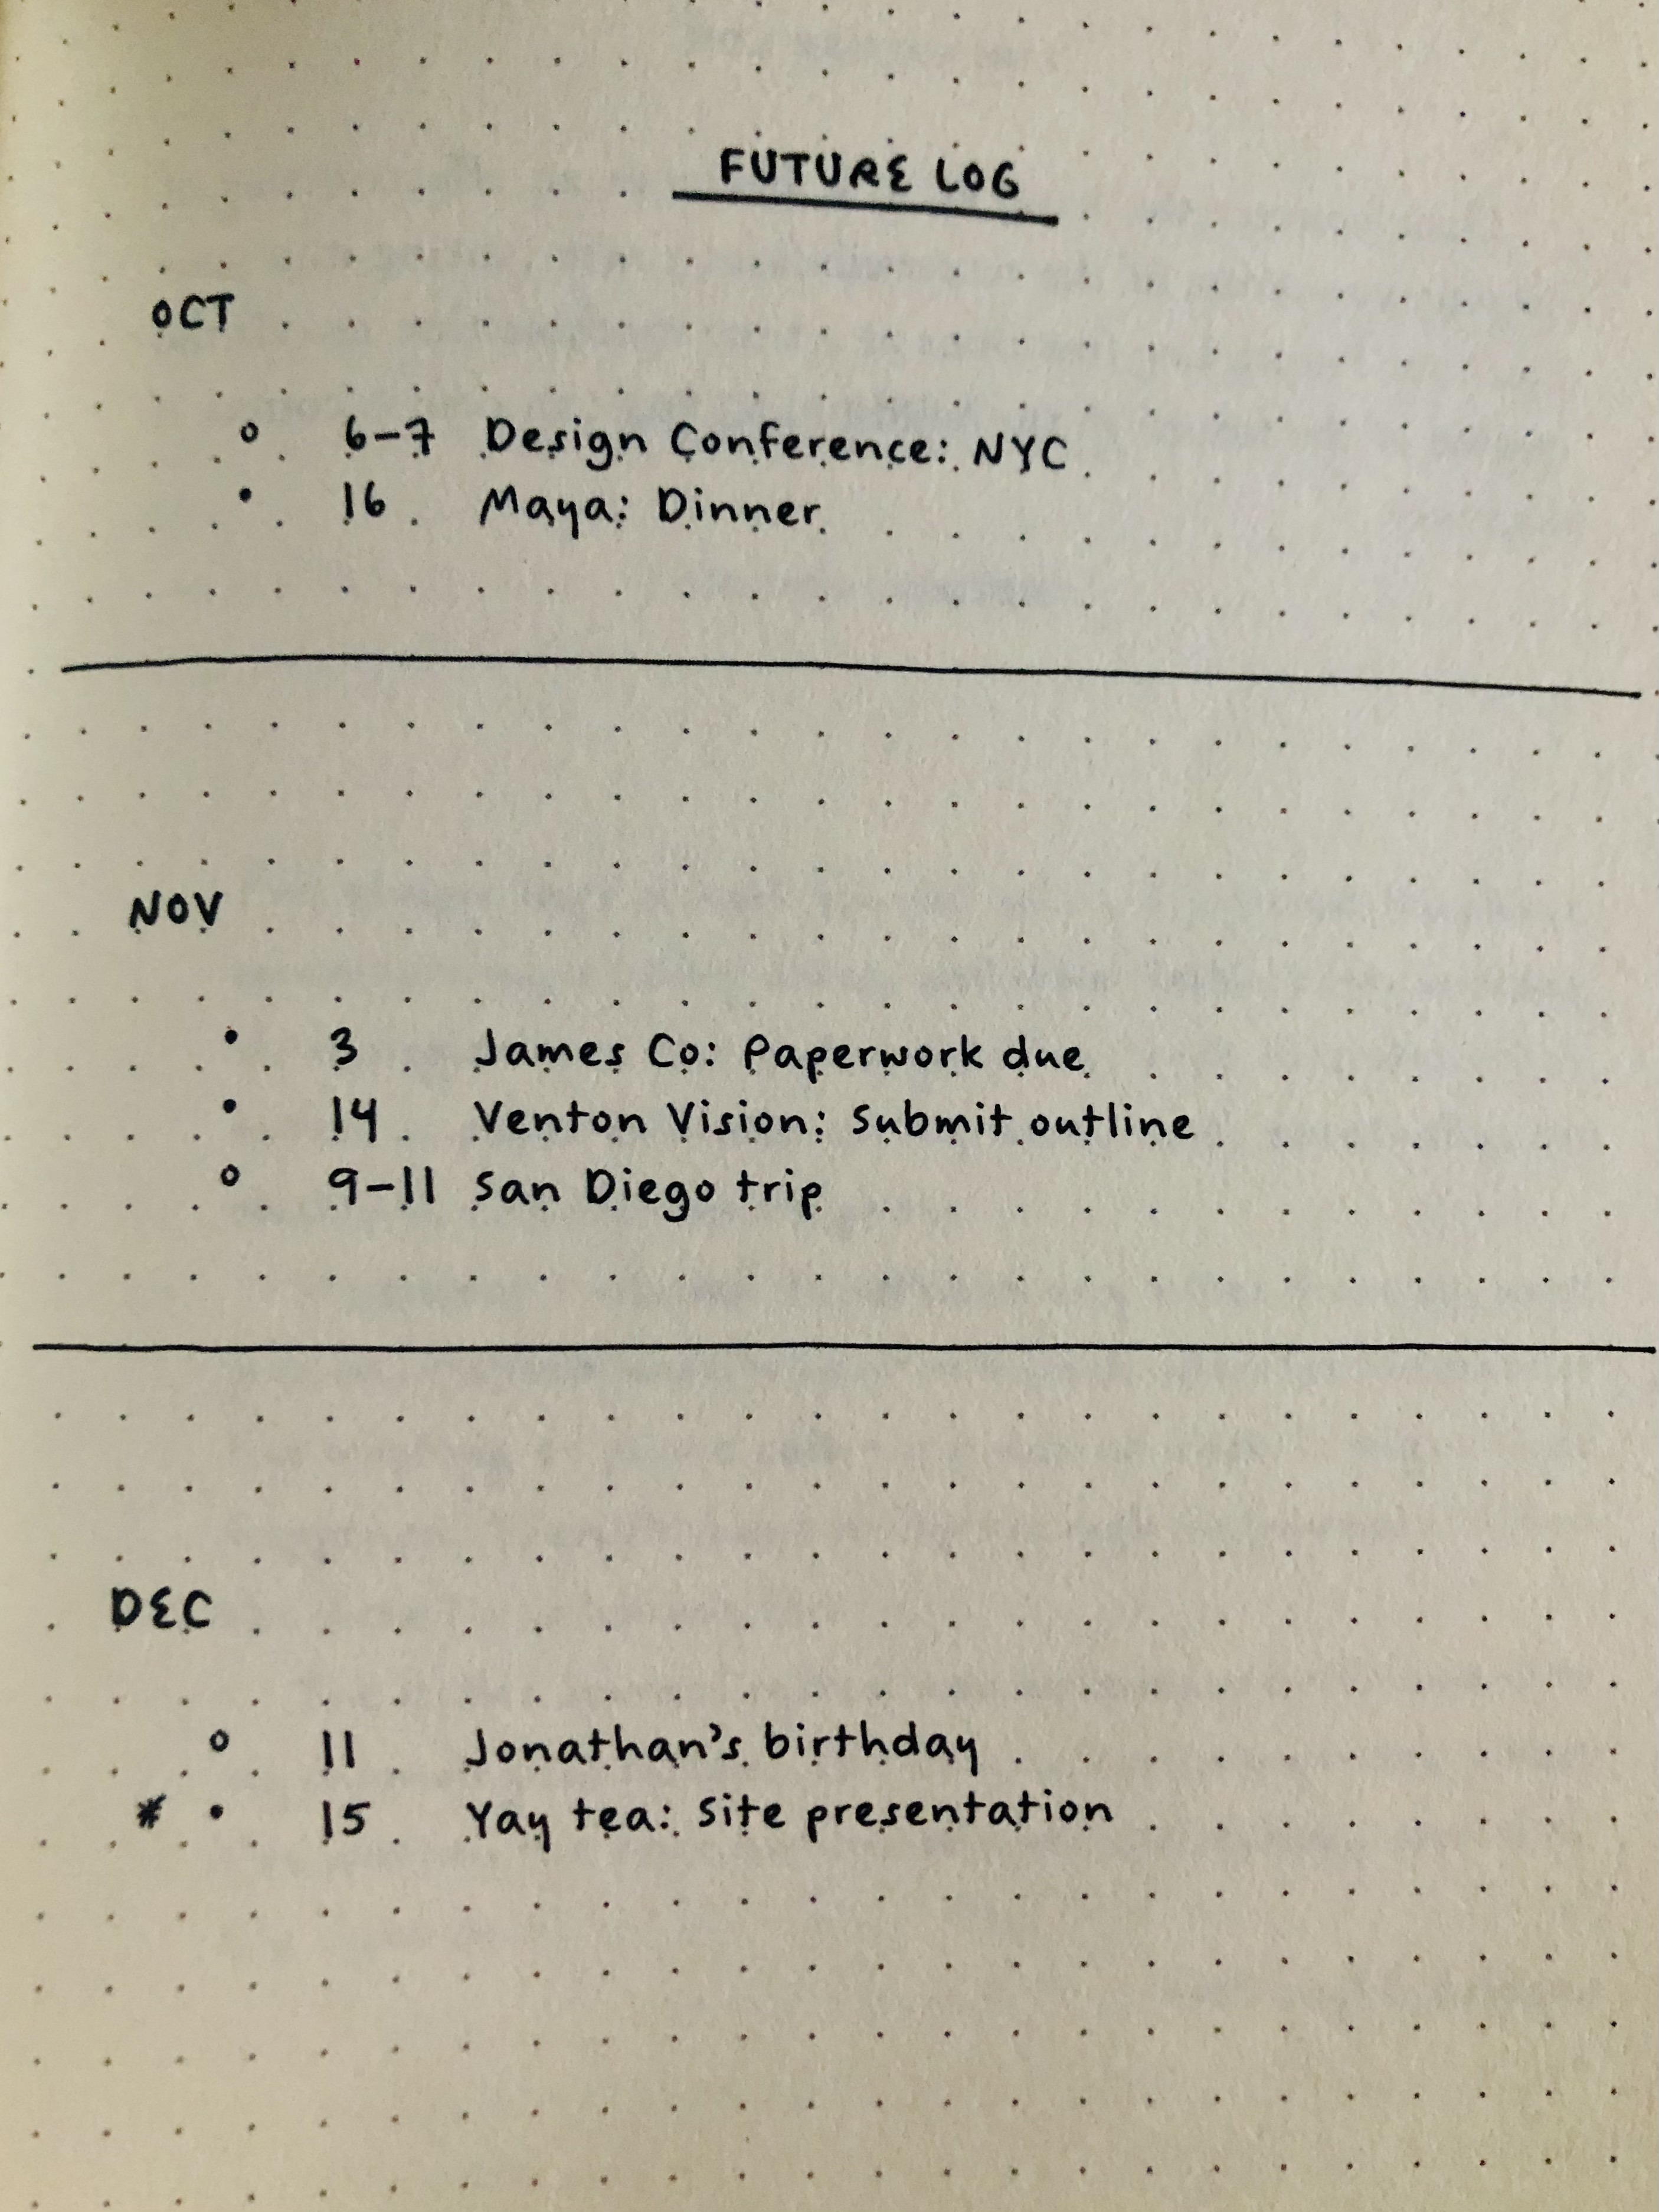 FUTURE LOG
OCT
o 6-7 Design Conference: NYC
• 16 Maya: Dinner
NOV
• 3 James Co: Paperwork due
• 14 Venton Vision: Submit outline
o 9-11 San Diego trip
DEC
o 11 Jonathan's birthday
* • 15 Yay tea: Site presentation